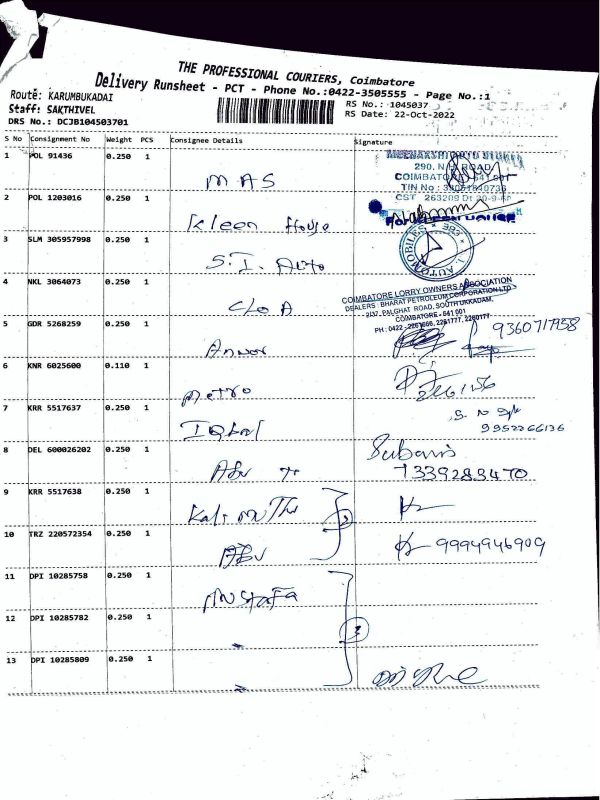 THE PROFESSIONAL COURIERS, Coimbatore
Delivery Runsheet - PCT - Phone No.:0422-3505555 - Page No.:1
Route: KARUMBUKADAI
Staff: SAKTHIVEL
DRS No.: DCJB104503701
RS No.: 1045037
RS Date: 22-Oct-2022
S No Consignment No Weight PCS Consignee Details Signature
1 POL 91436 0.250 1 MAS
290. N.H ROAD
COIMBATORE 641 001
TIN No :
CST
2 POL 1203016 0.250 1 Kleen House
3 SLM 305957998 0.250 1 S.I. Auto
AUTOMOBILES CBE
4 NKL 3064073 0.250 1 C/o A
COIMBATORE LORRY OWNERS ASSOCIATION
DEALERS : BHARAT PETROLEUM CORPORATION LTD
2/37, PALGHAT ROAD, SOUTH UKKADAM,
COIMBATORE - 641 001
PH : 0422 - 2261666, 2261777, 2260177
5 GDR 5268259 0.250 1 Anwar 9360717958
6 KNR 6025600 0.110 1 Metro 2261156
7 KRR 5517637 0.250 1 Iqbal
9952266136
8 DEL 600026202 0.250 1 Abu Tr
7339283470
9 KRR 5517638 0.250 1 Kali Muthu
2
10 TRZ 220572354 0.250 1 ABU 9994946909
11 DPI 10285758 0.250 1 Mustafa
12 DPI 10285782 0.250 1 "
3
13 DPI 10285809 0.250 1 "